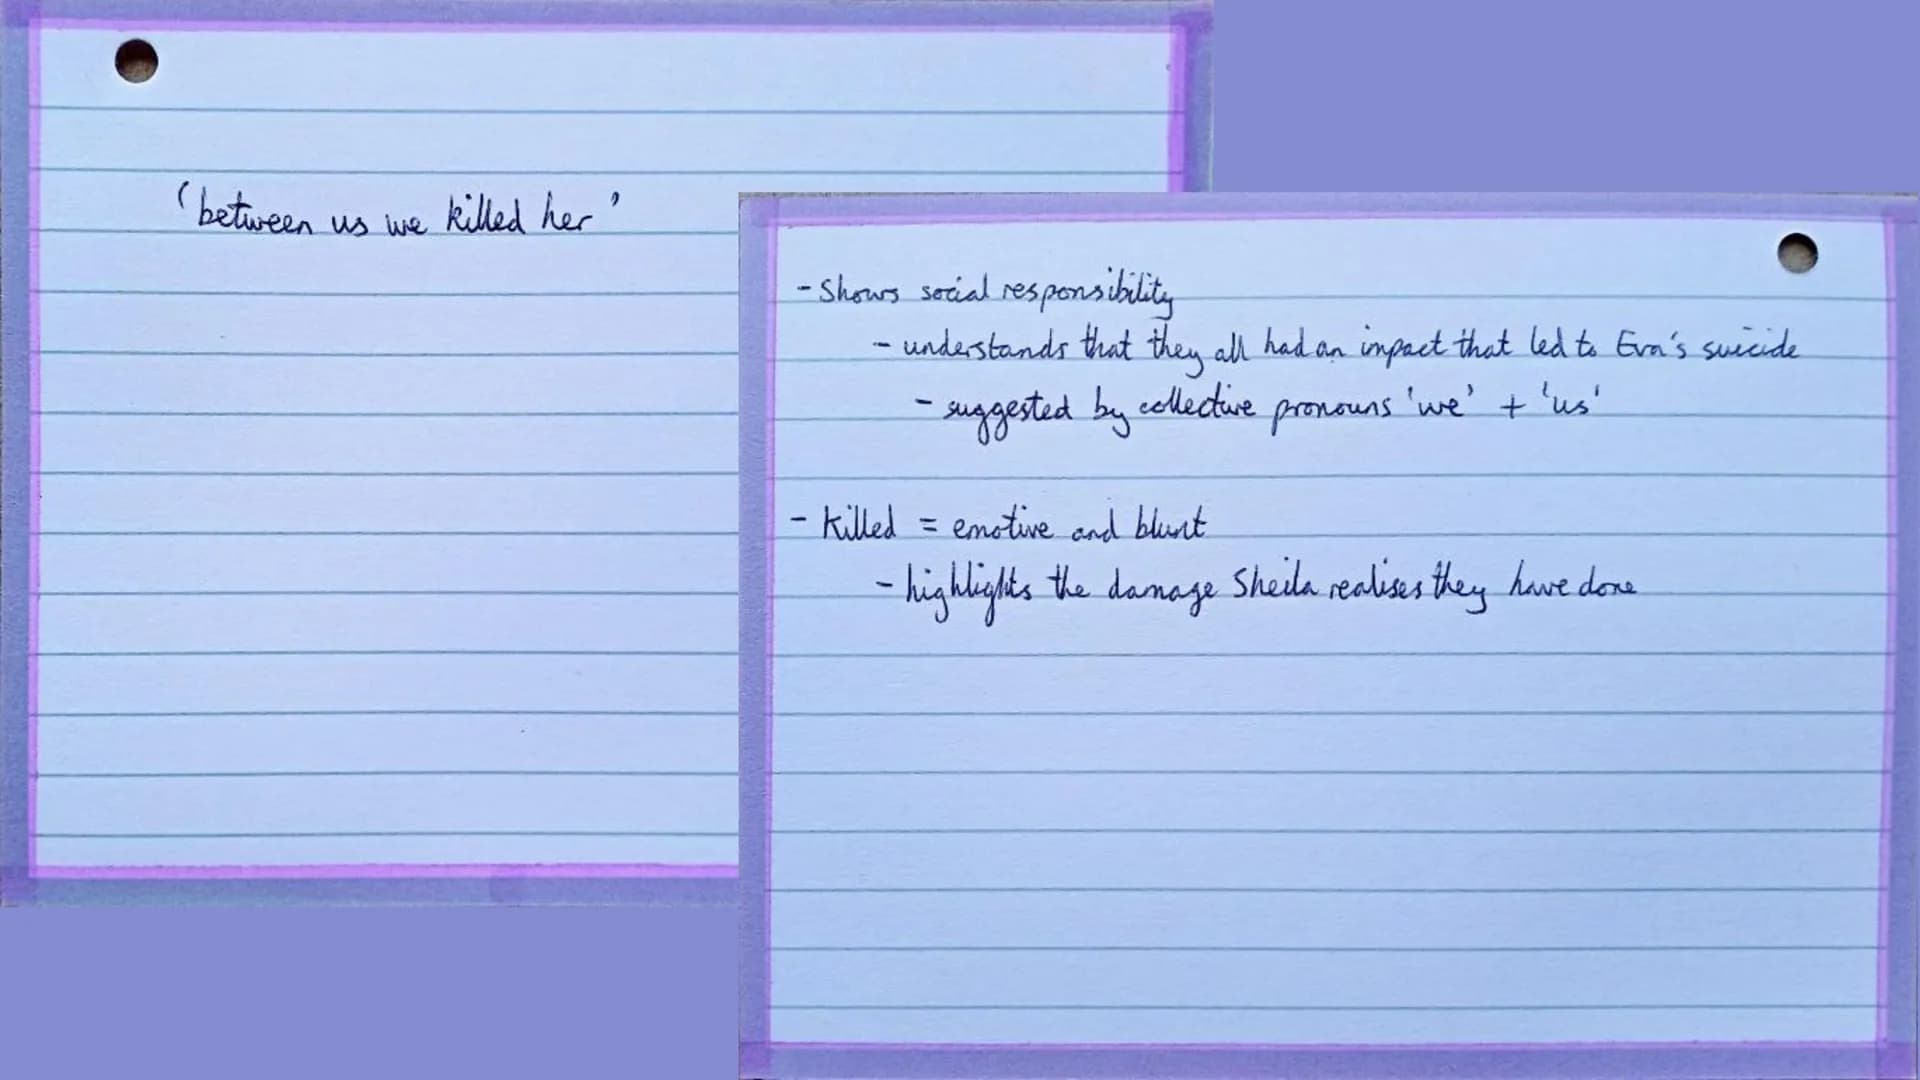 'between us we killed her'
- Shows social responsibility
- understands that they all had an impact that led to Eva's suicide
- suggested by collective pronouns 'we' + 'us'
- Killed = emotive and blunt
- highlights the damage Sheila realises they have done